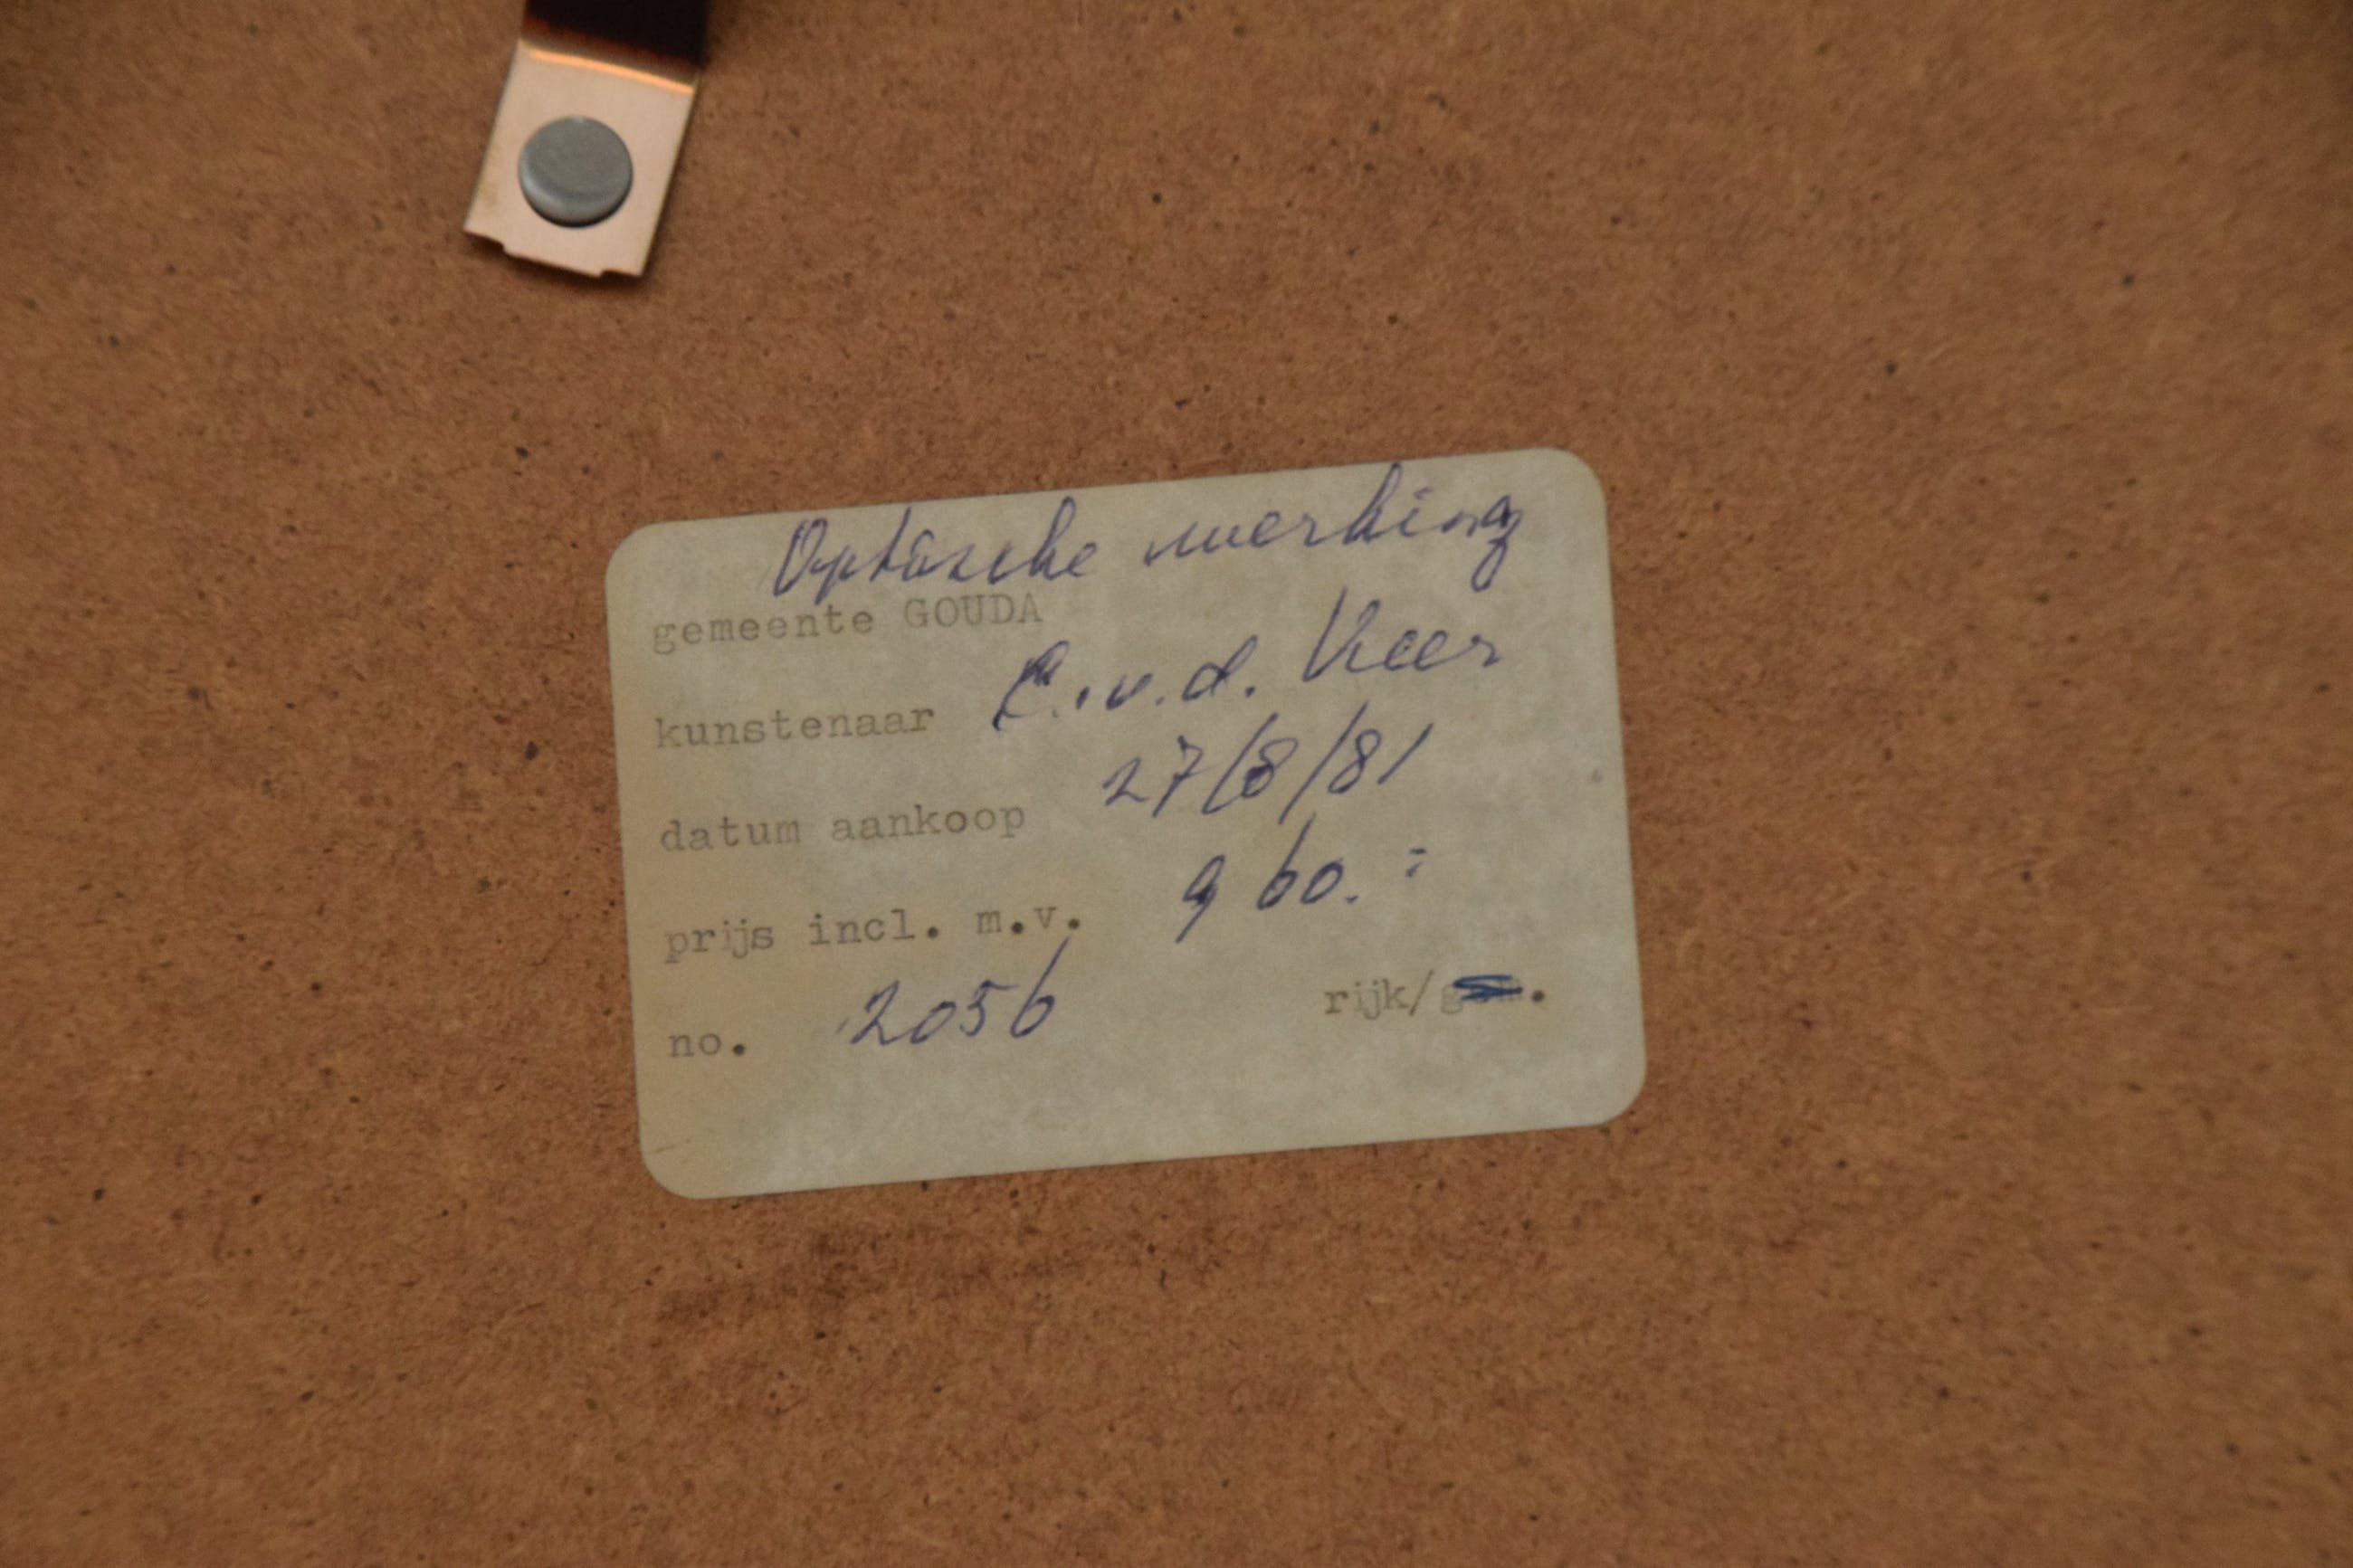 Optische werking
gemeente GOUDA
kunstenaar C.v.d. Veer
datum aankoop 27/8/81
prijs incl. m.v. 960.=
no. 2056 rijk/